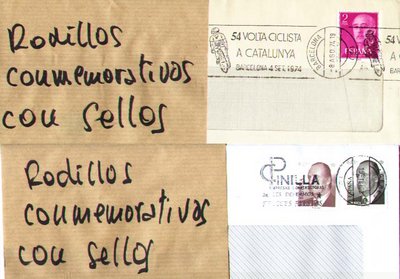 Rodillos
conmemorativos
con sellos
54 VOLTA CICLISTA
A CATALUNYA
BARCELONA 4 SET. 1974
BARCELONA
8 AGO 74
2
ESPAÑA
54
A C
BARC
Rodillos
conmemorativos
con sellos
PINILLA
ESPAÑA